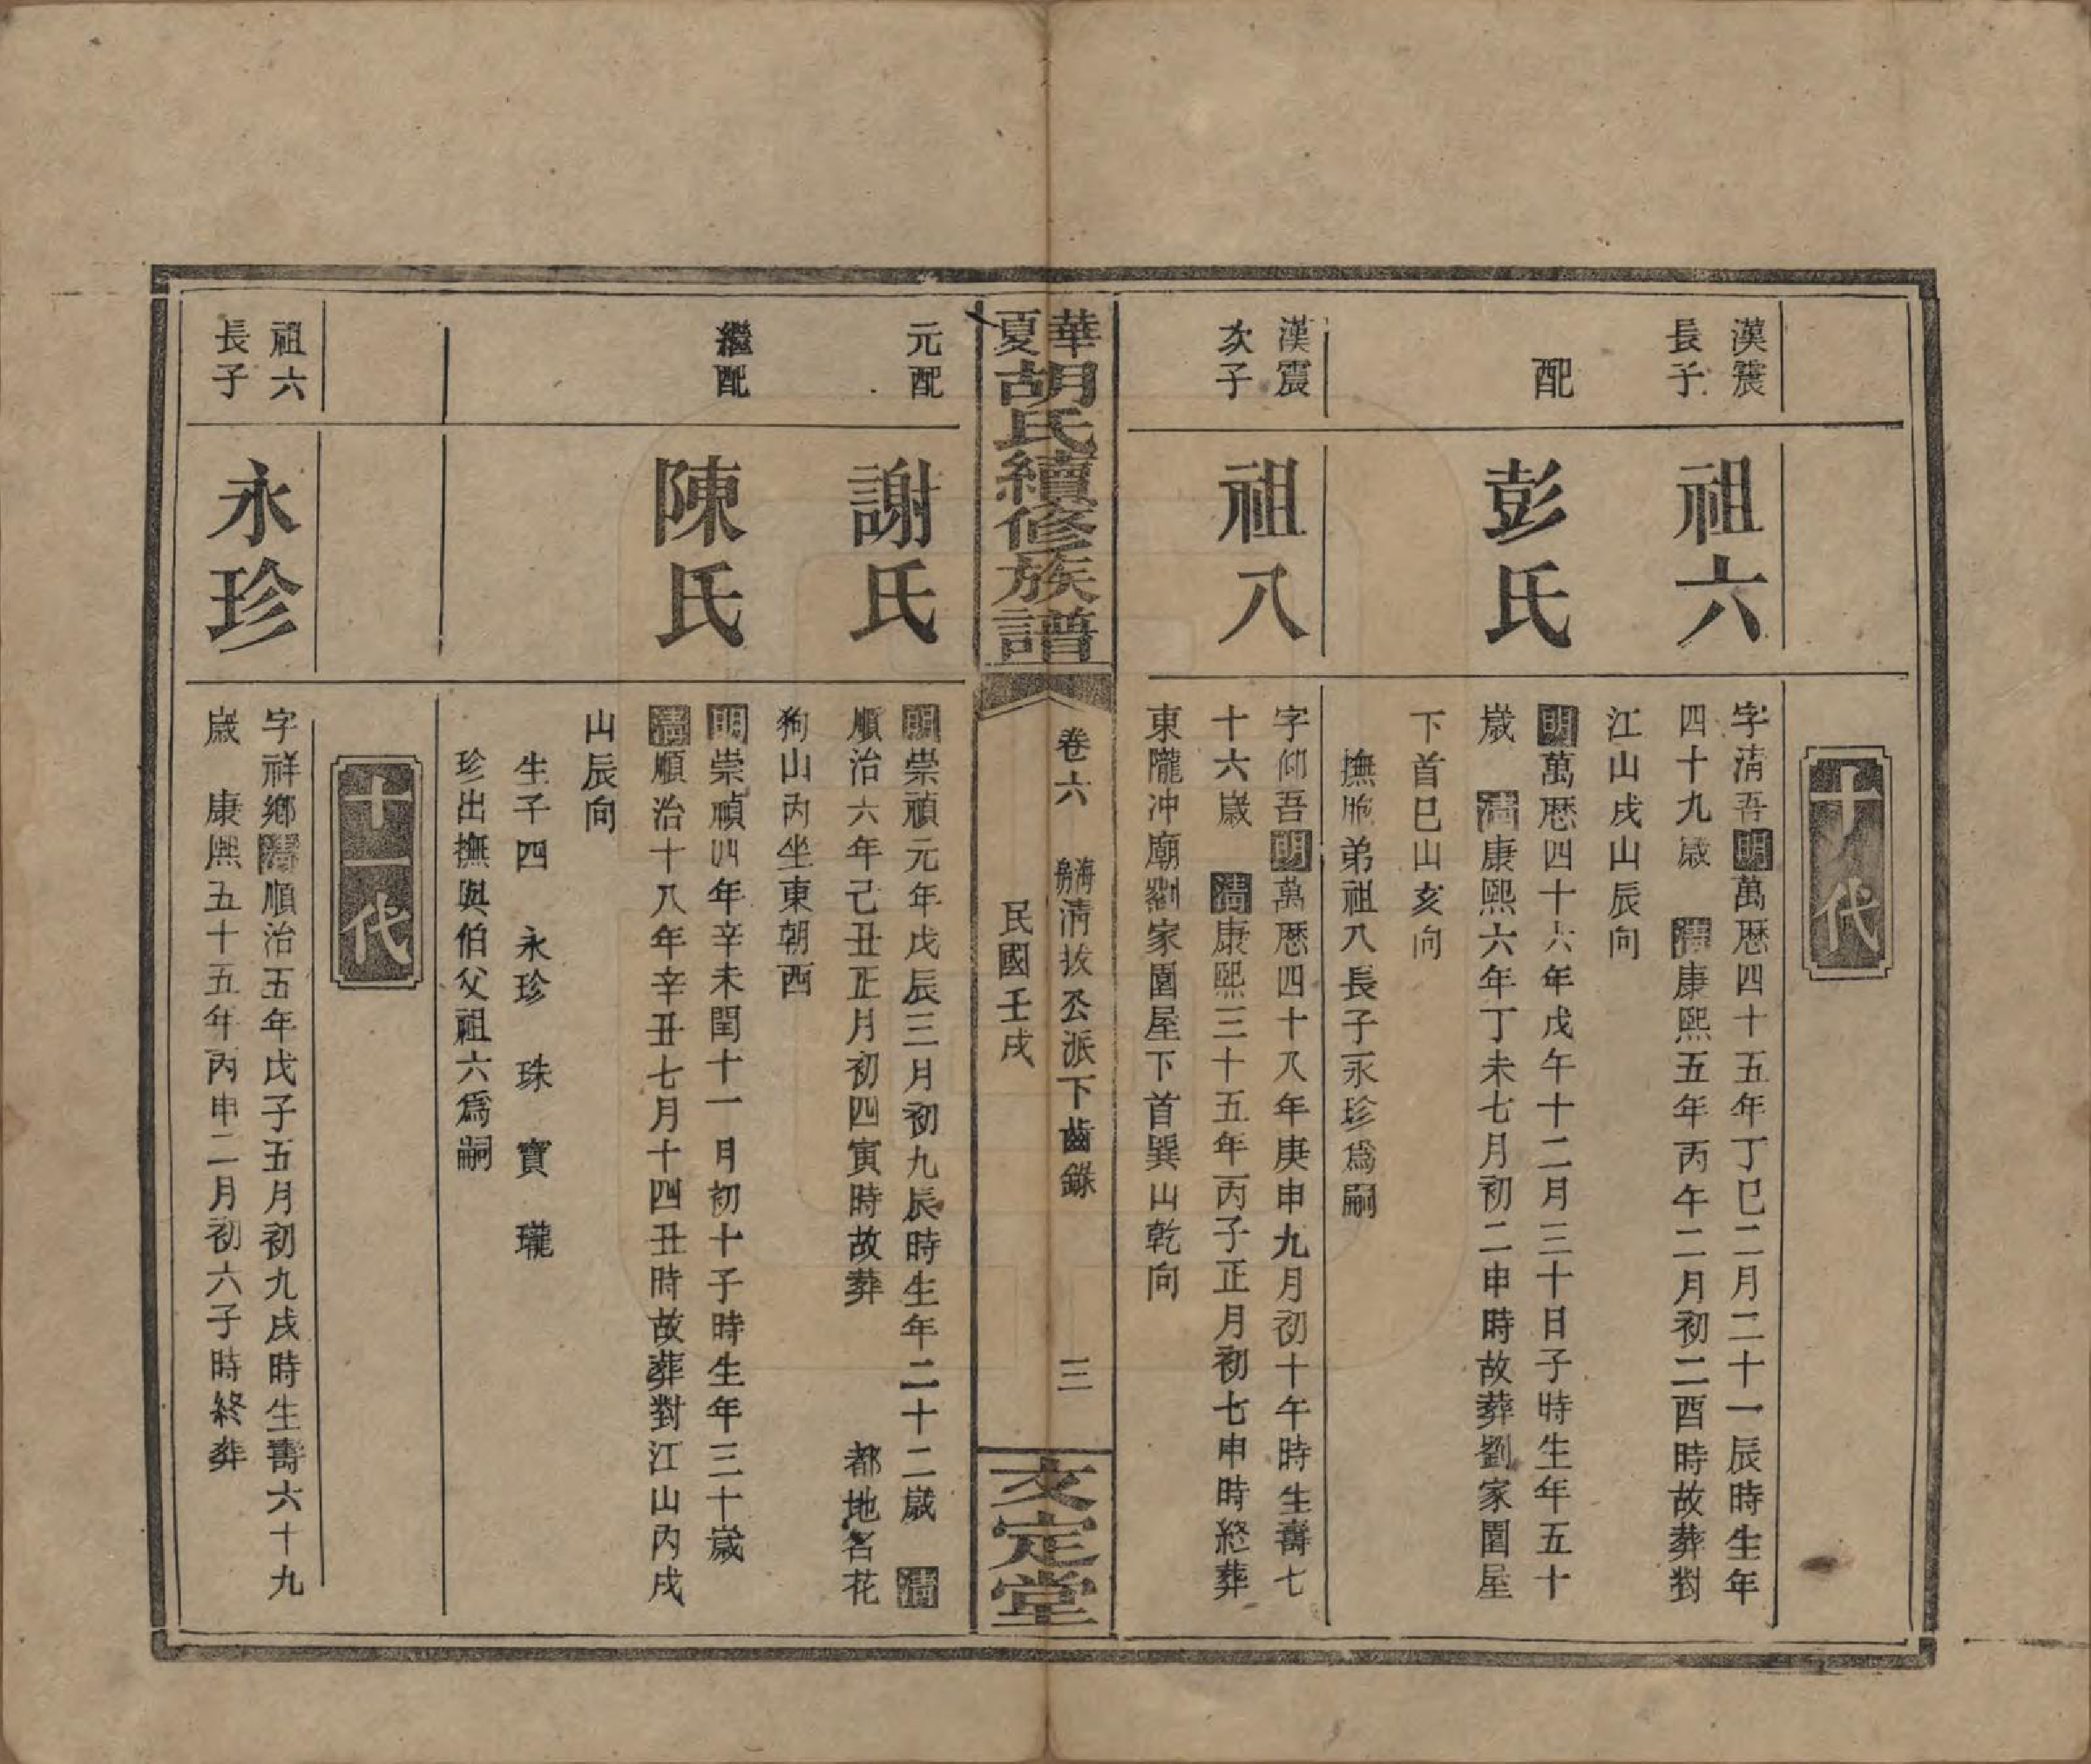 十代
漢震
長子
祖六
字淸吾明萬歷四十五年丁巳二月二十一辰時生年
四十九歲 淸康熙五年丙午二月初二酉時故葬對
江山戌山辰向
配
彭氏
明萬歷四十六年戊午十二月三十日子時生年五十
歲 淸康熙六年丁未七月初二申時故葬劉家園屋
下首巳山亥向
撫胞弟祖八長子永珍爲嗣
漢震
次子
祖八
字仰吾明萬歷四十八年庚申九月初十午時生壽七
十六歲 淸康熙三十五年丙子正月初七申時終葬
東隴冲廟劉家園屋下首巽山乾向
華夏胡氏續修族譜
卷六 海房淸拔公派下齒錄 三
民國壬戌
文定堂
元配
謝氏
明崇禎元年戊辰三月初九辰時生年二十二歲 淸
順治六年己丑正月初四寅時故葬 都地名花
狗山丙坐東朝西
繼配
陳氏
明崇禎四年辛未閏十一月初十子時生年三十歲
淸順治十八年辛丑七月十四丑時故葬對江山內戌
山辰向
生子四 永珍 珠 寶 瓏
珍出撫與伯父祖六爲嗣
十一代
祖六
長子
永珍
字祥鄉淸順治五年戊子五月初九戌時生壽六十九
歲 康熙五十五年丙申二月初六子時終葬